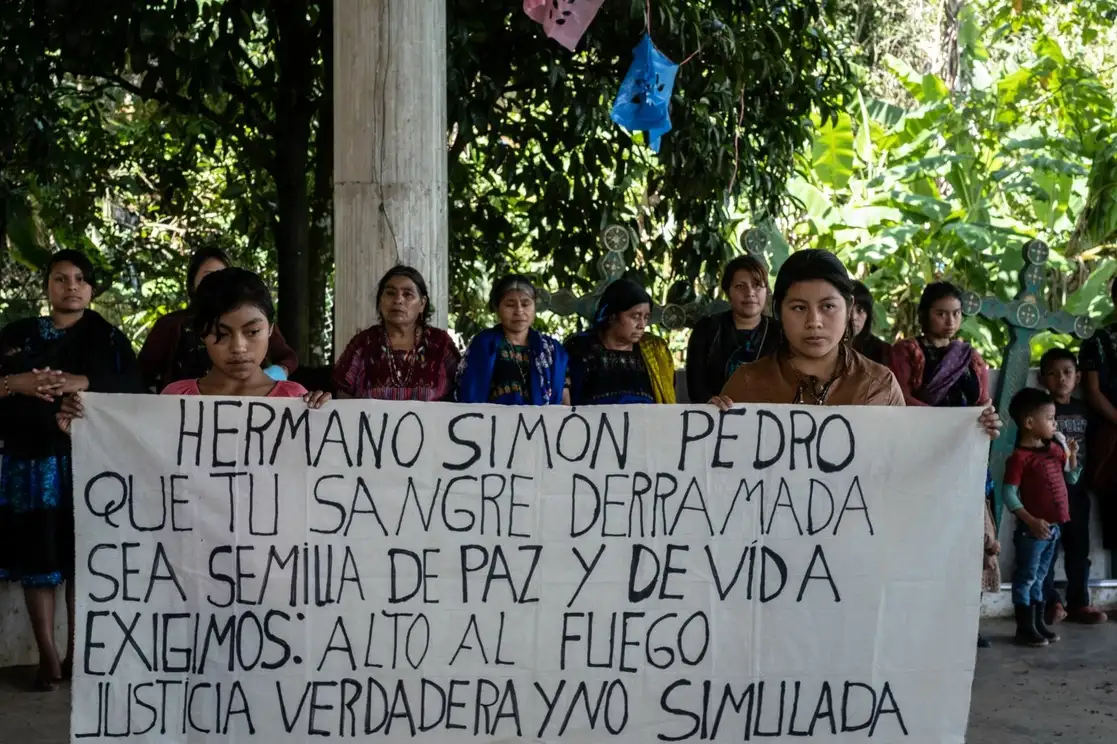 HERMANO SIMÓN PEDRO
QUE TU SANGRE DERRAMADA
SEA SEMILLA DE PAZ Y DE VÍDA
EXIGIMOS: ALTO AL FUEGO
JUSTICIA VERDADERA Y NO SIMULADA